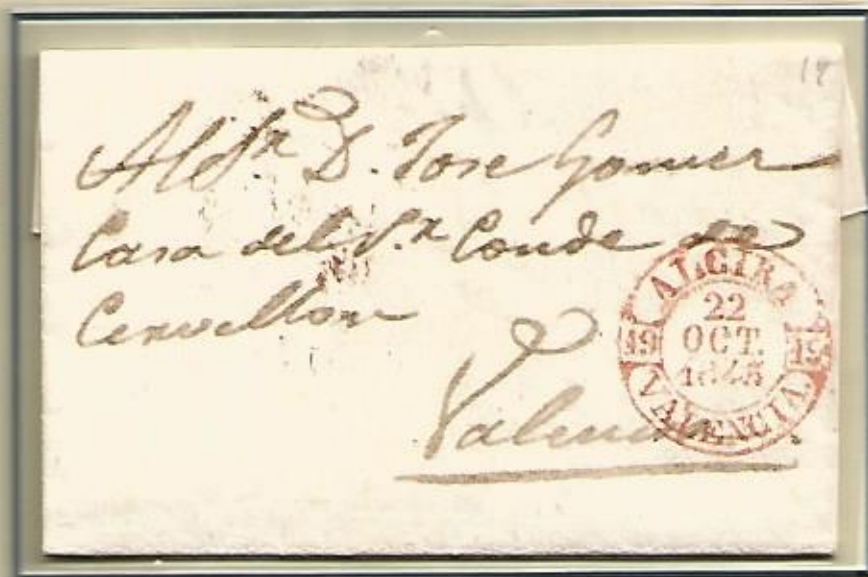 Al Sr. D. Jose Gomez
Casa del Sr. Conde de
Cervellon
Valencia
ALCIRA
22
OCT.
1845
19 19
VALENCIA.